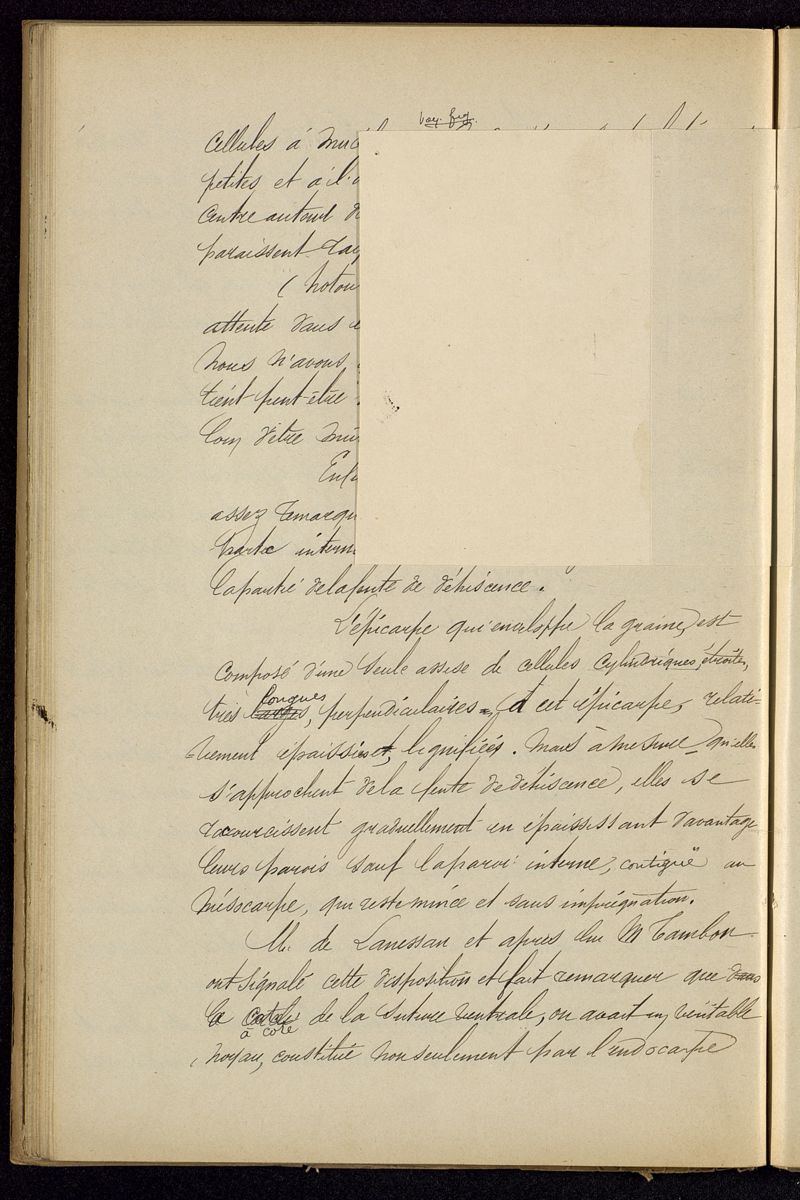 voy. fig.
cellules à
petites et à l'
centre autour
paraissent
( Notou
attente dans
nous n'avons
tient peut-être
loin d'être mû
Enfi
assez remarqu
partie intern
la partie de la fente de déhiscence.
L'épicarpe qui enveloppe la graine, est
composé d'une seule assise de cellules cylindriques, étroites,
très longues, perpendiculaires à cet épicarpe, relati-
-vement épaissies et lignifiées. Mais à mesure qu'elles
s'approchent de la fente de déhiscence, elles se
racourcissent graduellement en épaississant davantage
leurs parois sauf la paroi interne, contiguë au
mésocarpe, qui reste mince et sans imprégnation.
M. de Lanessan et après lui M Tambon
ont signalé cette disposition et fait remarquer que dans
à côté de la suture ventrale, on avait un véritable
noyau, constitué non seulement par l'endocarpe